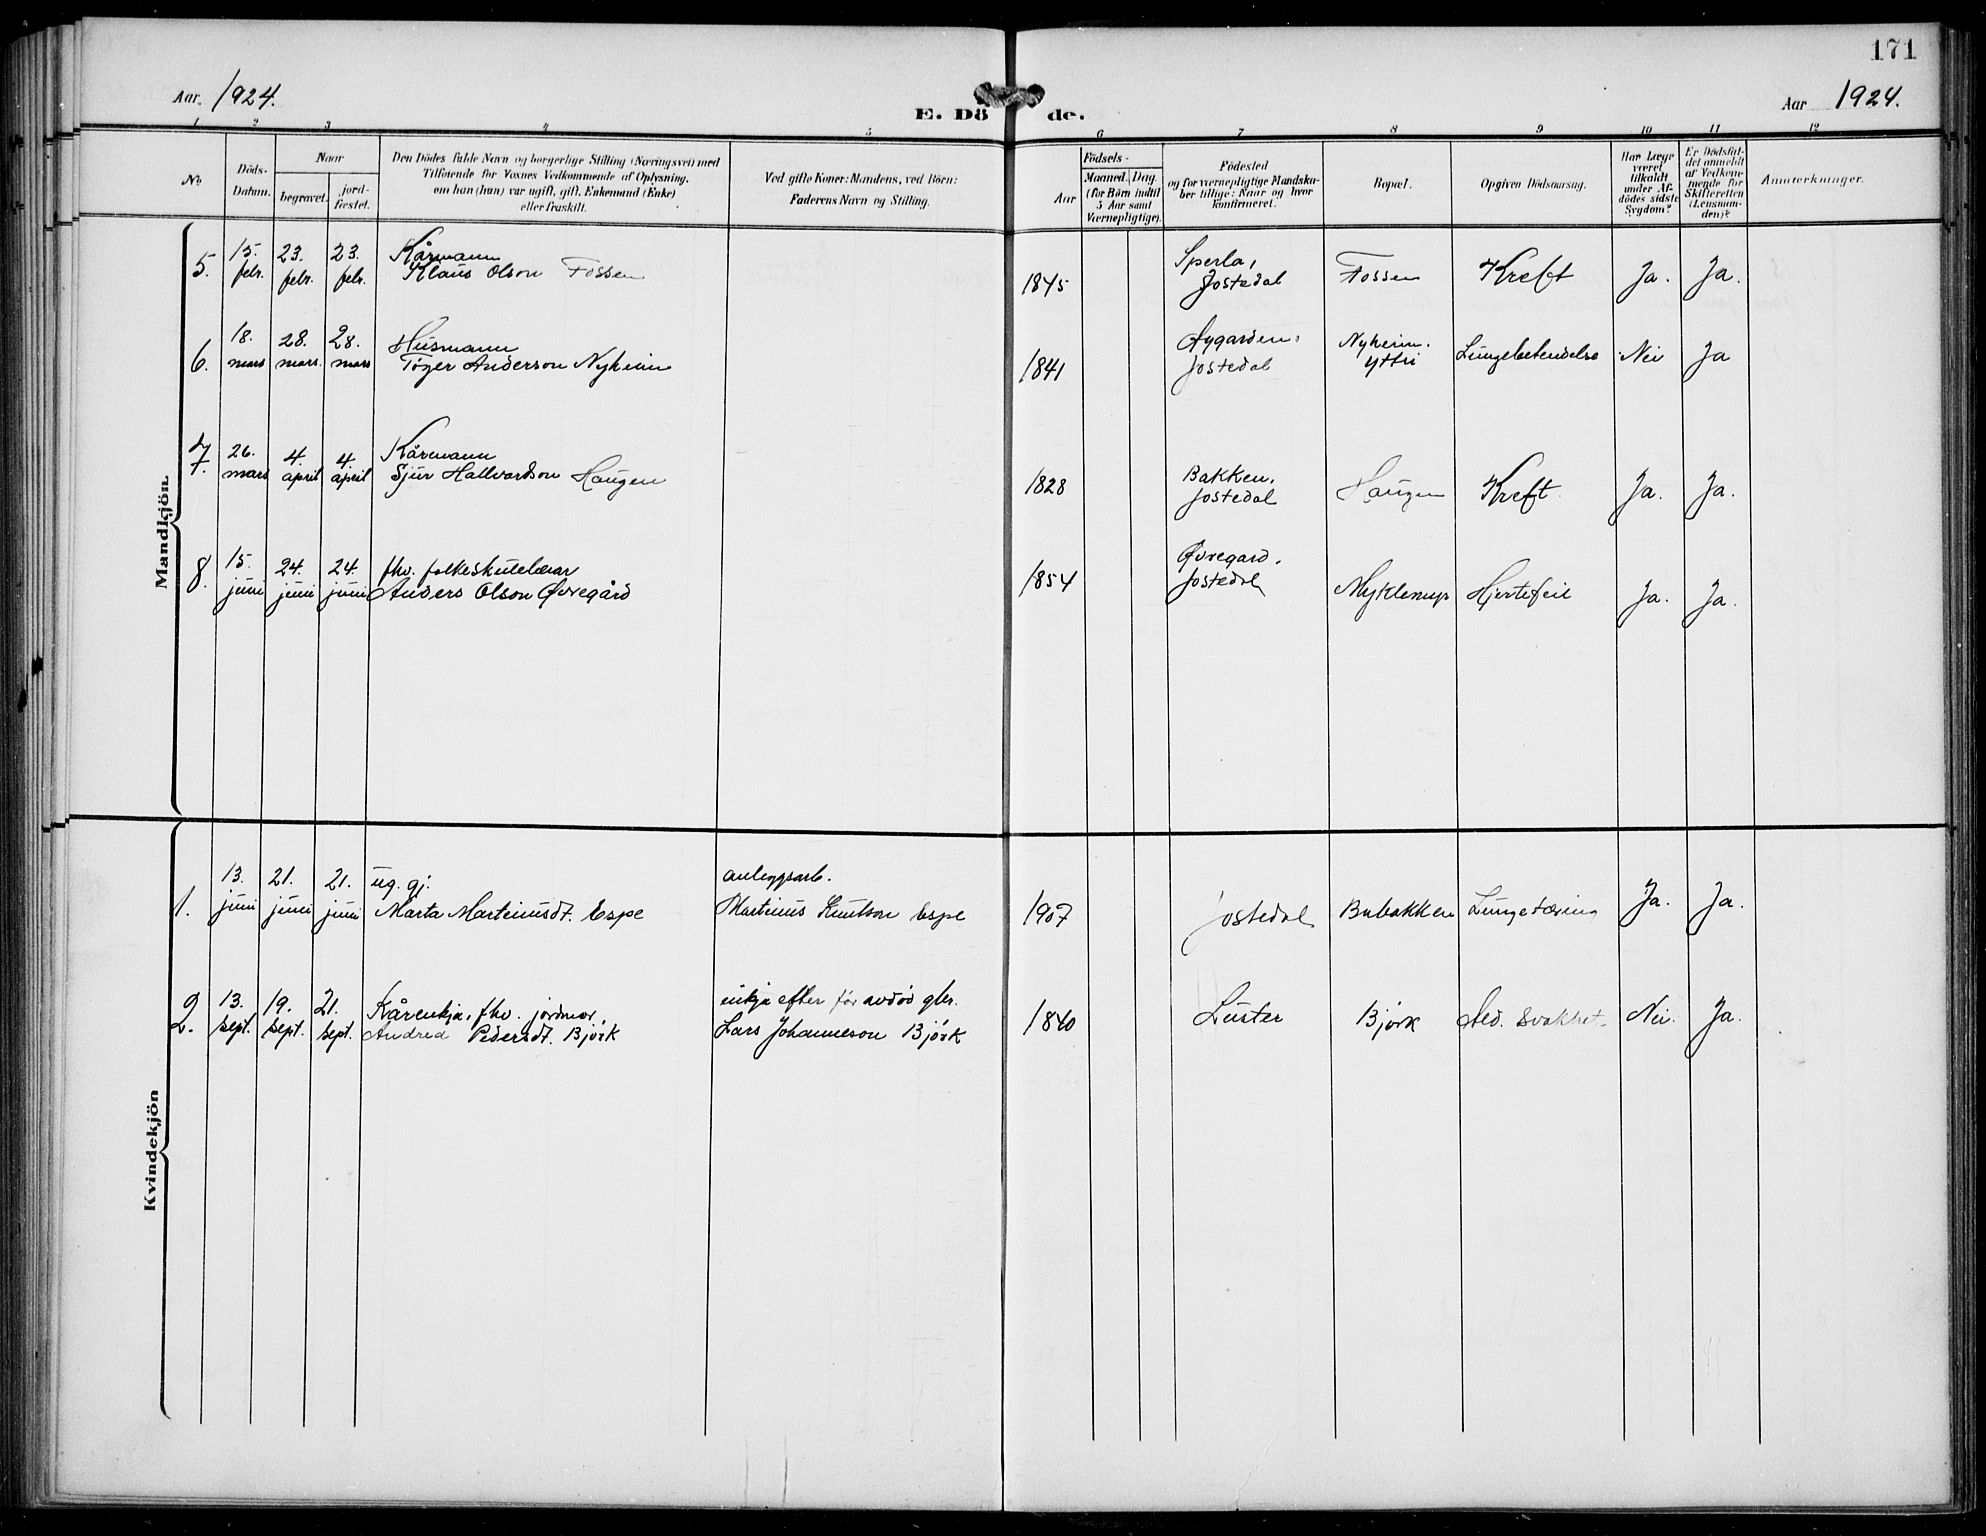 171
Aar. 1924.
E. Döde.
Aar 1924.
1 2 3 4 5 6 7 8 9 10 11 12
No
Döds-
Datum.
Naar
begravet.
jord-
fæstet.
Den Dödes fulde Navn og borgerlige Stilling (Næringsvei) med
Tilföiende for Voxnes Vedkommende af Oplysning.
om han (hun) var ugift, gift, Enkemand (Enke)
eller fraskilt.
Ved gifte Koner: Mandens, ved Börn:
Faderens Navn og Stilling.
Födsels-
Aar
Maaned. Dag.
(for Börn indtil
5 Aar samt
Værnepligtige).
Födested
og for værnepligtige Mandska-
ber tillige: Naar og hvor
konfirmeret.
Bopæl.
Opgiven Dödsaarsag.
Har Læge
været
tilkaldt
under Af-
dödes sidste
Sygdom?
Er Dödsfal-
det anmeldt
af Vedkom-
mende for
Skifteretten
(Lensman-
den)?
Anmærkninger.
Mandkjön.
5. 15. febr. 23. febr. 23. febr. Kårmann
Klaus Olson Fossen
1845 Sperla, Jostedal Fossen Kreft Ja. Ja.
6. 18. mars 28. mars. 28. mars Husmann
Tøger Anderson Nyheim
1841 Nygarden, Jostedal Nyheim. Yttri Lungebetendelse Nei Ja
7. 26. mars 4. april 4. april Kårmann
Sjur Hallvardson Haugen
1828 Bakken, Jostedal Haugen Kreft. Ja. Ja.
8. 15. juni 24. juni 24. juni fhv. folkeskulelærar
Anders Olson Øvregård
1854 Øvregard. Jostedal Myklemyr Hjertefeil Ja. Ja.
Kvindekjön
1. 13. juni 21. juni 21. juni ug. gj.
Marta Martinusdt. Espe
anleggsarb.
Martinus Knutson Espe
1907 Jostedal Bubakken Lungetæring Ja. Ja.
2. 13. sept. 19. sept. 21. sept. Kårenkja, fhv. jordmor,
Andrea Pedersdt. Bjørk
enkja efter før avdød gbr.
Lars Johanneson Bjørk
1840 Luster Bjørk Ald. svakhet. Nei. Ja.